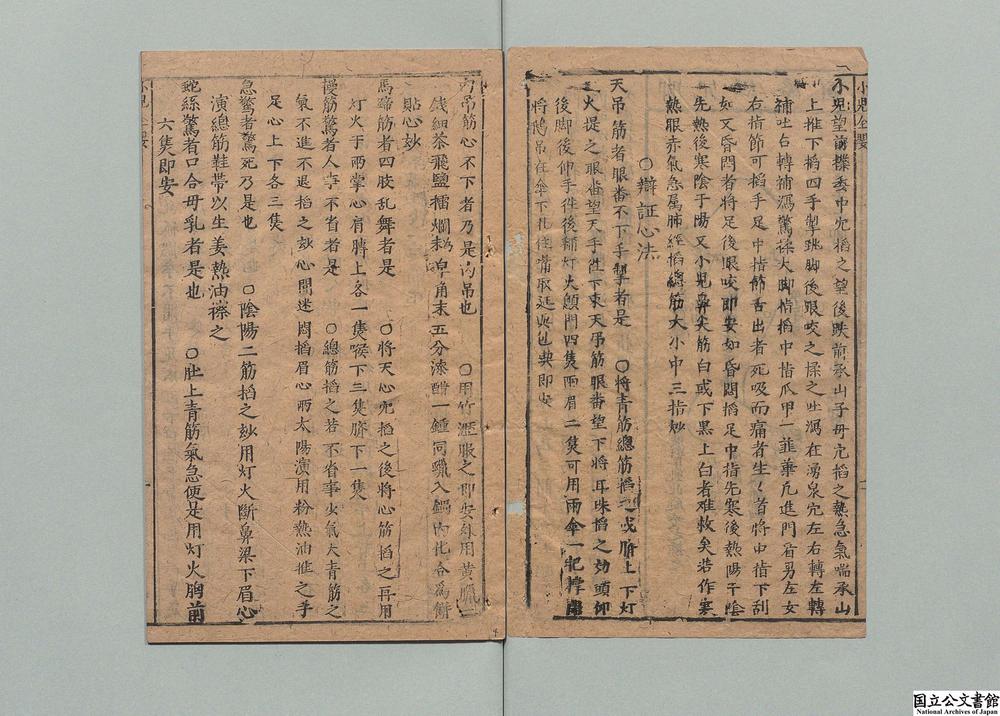 小兒望前撲委中穴搯之望後跌前承山子母穴搯之熱急氣喘承山
上推下搯四手掣跳脚後跟咬之揉之吐瀉在湧泉穴左右轉左轉
補吐右轉補瀉驚揉大脚指搯中指爪甲一韮葉凢進門看男左女
右指節可搯手足中指節舌出者死吸而痛者生〻首將中指下刮
如又昏悶者將足後眼咬即安如昏悶搯足中指先寒後熱陽干陰
先熱後寒陰于陽又小兒鼻尖筋白或下黒上白者难救矣若作寒
熱眼赤氣急属肺經搯總筋大小中三指妙
〇辯証心法
天吊筋者眼番不下手掣者是　〇將青筋總筋搯之或臍上下灯
火提之眼番望天手徃下束天吊筋眼番望下將耳珠搯之効頭仰
後脚後伸手徃後補灯火顖門四隻両眉二隻可用雨傘一把撑
將鵝吊在傘下扎住嘴取延與他典即安
内吊筋心不下者乃是内吊也　〇用竹瀝服之即安外用黄臘二
錢細茶飛鹽擂爛皂角末五分漆醋一鍾同臘入鍋内化合為餅
貼心妙
馬蹄筋者四肢乱舞者是　〇將天心穴搯之後將心筋搯之再用
灯火于两掌心肩膊上各一隻喉下三隻臍下一隻
慢筋驚者人事不省者是　〇總筋搯之若不省事少氣大青筋之
氣不進不退搯之妙心間迷悶搯眉心两太陽演用粉熱油推之手
足心上下各三隻
急驚者驚死乃是也　〇陰陽二筋搯之妙用灯火断鼻梁下眉心
演總筋鞋帶以生姜熱油㩇之
蛇絲驚者口合母乳者是也　〇肚上青筋氣急便是用灯火胸前
六隻即安
小兒全嬰
国立公文書館
National Archives of Japan